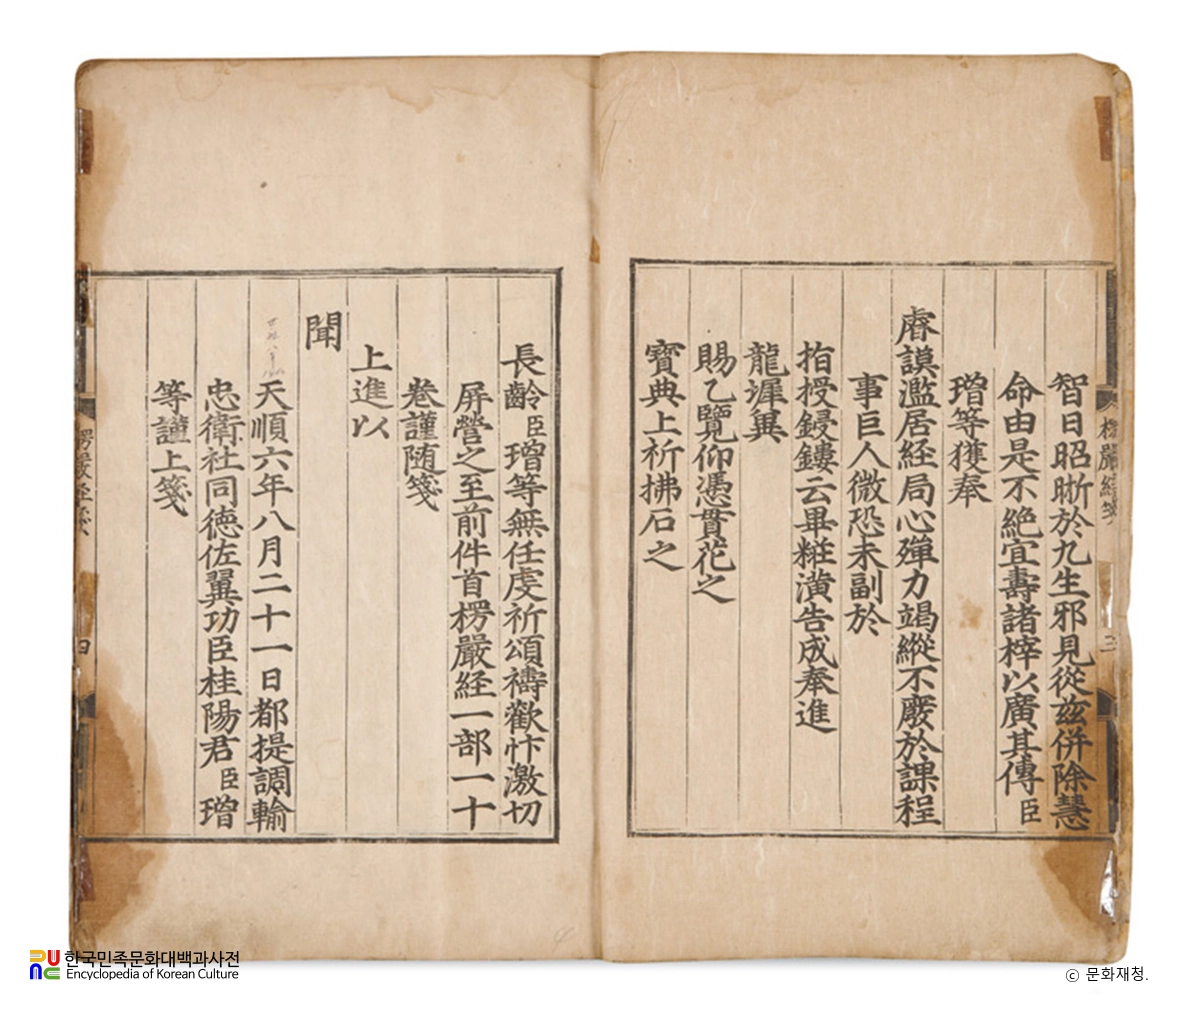 智日昭晰於九生邪見從茲併除慧
命由是不絕宜壽諸梓以廣其傳臣
璔等獲奉
睿謨濫居経局心殫力竭縱不廢於課程
事巨人微恐未副於
指授鋟鏤云畢糚潢告成奉進
龍墀冀
賜乙覽仰憑貫花之
寶典上祈拂石之
長齡臣璔等無任虔祈頌禱歡忭激切
屏營之至前件首楞嚴経一部一十
卷謹随箋
上進以
聞
天順六年八月二十一日都提調輸
忠衛社同徳佐翼功臣桂陽君臣璔
等謹上箋
楞嚴経箋
三
四
한국민족문화대백과사전
Encyclopedia of Korean Culture
ⓒ 문화재청.